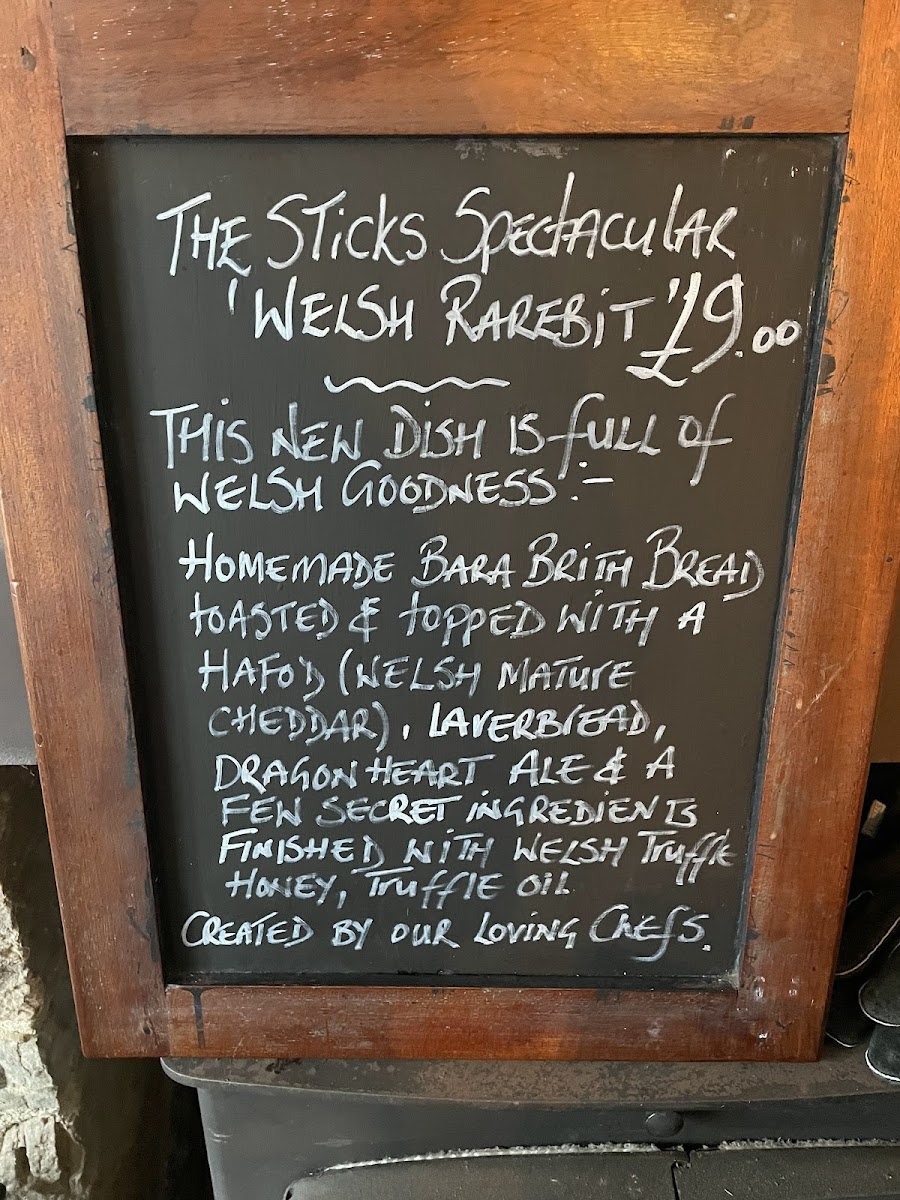 THE STICKS SPECTACULAR
'WELSH RAREBIT' £9.00
THIS NEW DISH IS FULL OF
WELSH GOODNESS :-
HOMEMADE BARA BRITH BREAD
TOASTED & TOPPED WITH A
HAFOD (WELSH MATURE
CHEDDAR), LAVERBREAD,
DRAGON HEART ALE & A
FEW SECRET INGREDIENTS
FINISHED WITH WELSH TRUFFLE
HONEY, TRUFFLE OIL
CREATED BY OUR LOVING CHEFS.